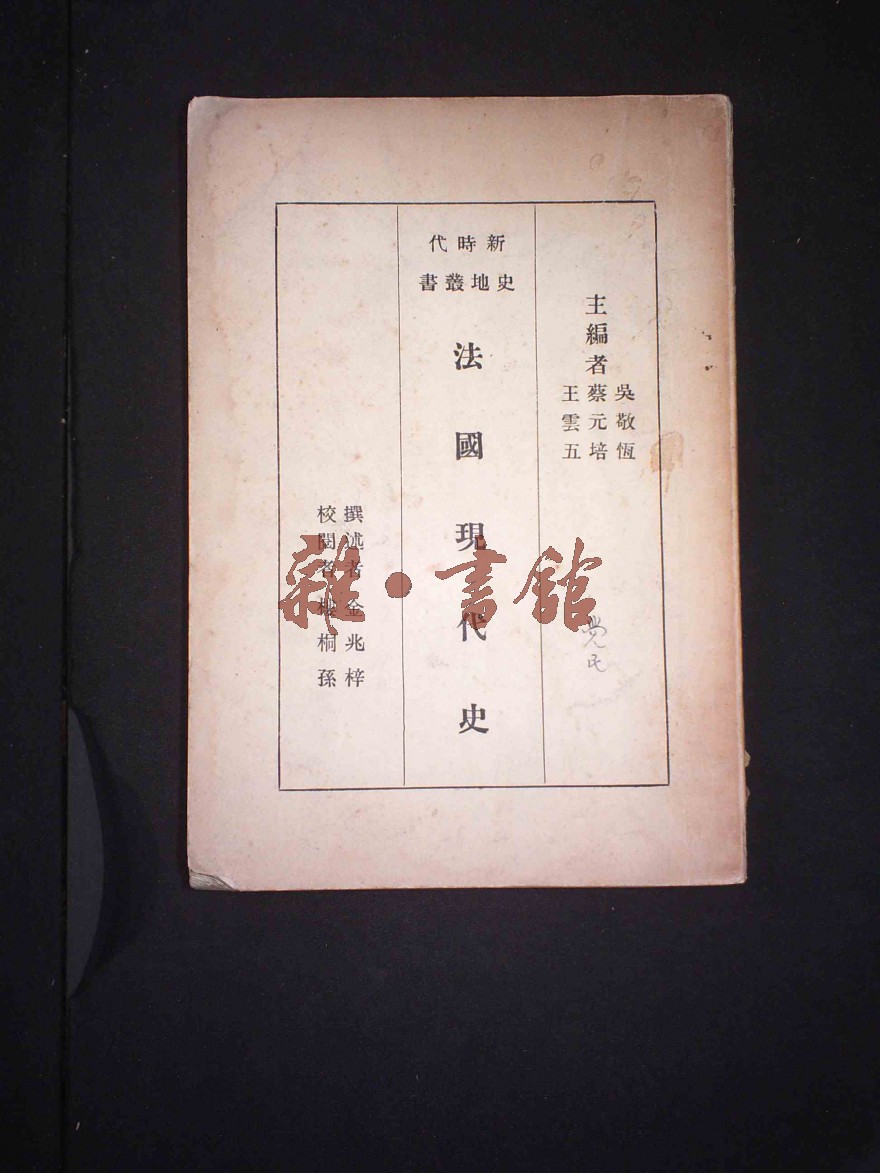 主編者
吳敬恆
蔡元培
王雲五
新時代
史地叢書
法國現代史
撰述者金兆梓
校閱者樓桐孫
雜·書館
党民